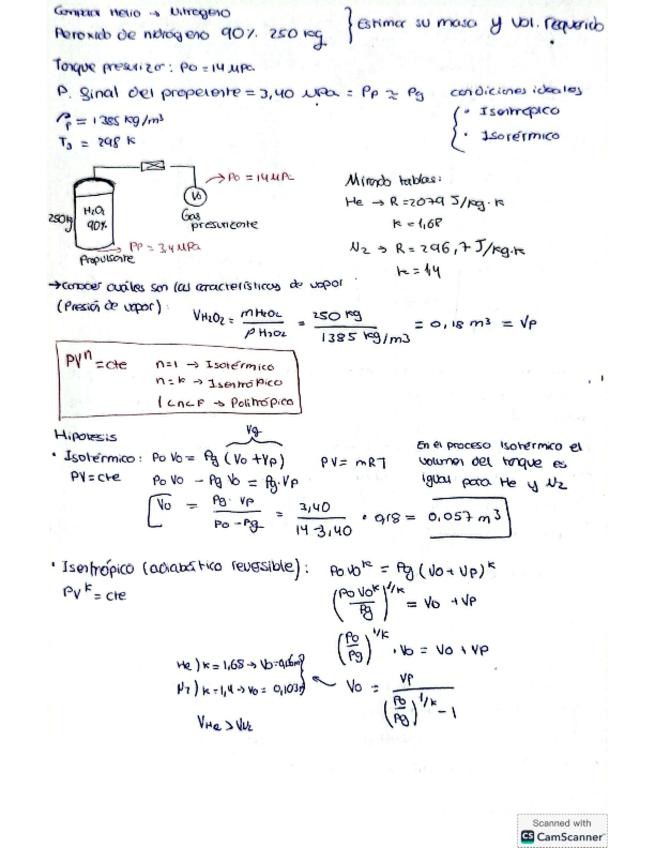 Comparar Helio → Nitrogeno
Peroxido de nitrógeno 90% 250 kg } Estimar su masa y vol. requerido
Tanque presurizor: Po = 14 MPa
P. final del propelente = 3,40 MPa = Pp ≈ Pg
condiciones ideales
{ · Isentrópico
· Isotérmico
ρp = 1385 kg/m³
T3 = 298 K
→ Po = 14 MPa
H2O2
90%
250 kg
Vo
Gas
presurizante
→ PP = 3,4 MPa
Propulsante
Mirando tablas:
He → R = 2079 J/kg·K
k = 1,68
N2 → R = 296,7 J/kg·K
k = 1,4
→ conocer cuáles son las características de vapor
(Presión de vapor):
VH2O2 = mH2O2 / ρH2O2 = 250 kg / 1385 kg/m3 = 0,18 m³ = Vp
PVⁿ = cte
n=1 → Isotérmico
n=k → Isentrópico
1<n<F → Politrópico
Hipotesis
Vg
· Isotérmico: PoVo = Pg (Vo + Vp)
PV = mRT
PV = cte
PoVo - PgVo = Pg·Vp
Vo = Pg·Vp / Po - Pg = 3,40 / 14-3,40 · 0,18 = 0,057 m³
En el proceso Isotérmico el
volumen del tanque es
igual para He y N2
· Isentrópico (adiabático reversible): PoVoᵏ = Pg (Vo + Vp)ᵏ
PVᵏ = cte
(PoVoᵏ / Pg)^1/k = Vo + Vp
(Po / Pg)^1/k · Vo = Vo + Vp
He) k = 1,68 →
N2) k = 1,4 → Vo = 0,103
Vo = Vp / (Po / Pg)^1/k - 1
VHe > VN2
Scanned with
CS CamScanner